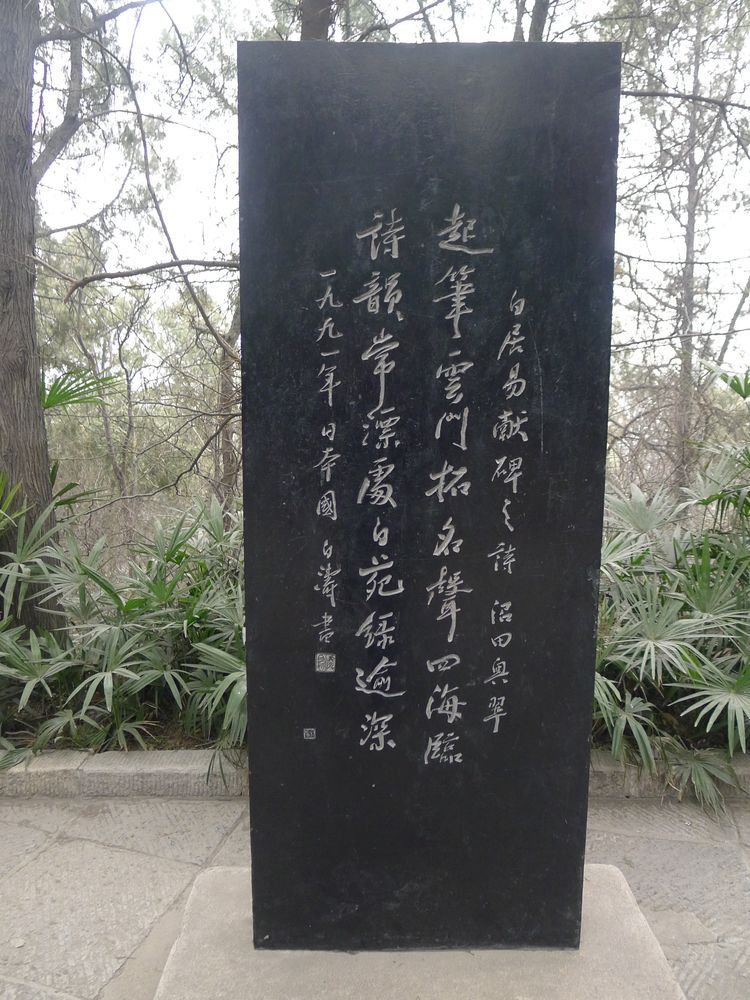 白居易献碑之詩 沼田奥翠
起筆雲門拓名聲四海臨
詩韻常漂處白苑緑逾深
一九九一年日本國白濤書